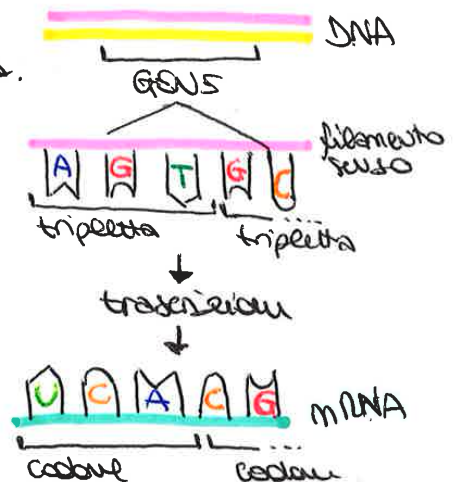 DNA
GENE
filamento
senso
A G T G C
tripletta tripletta ...
trascrizione
U C A C G
mRNA
codone codone ...